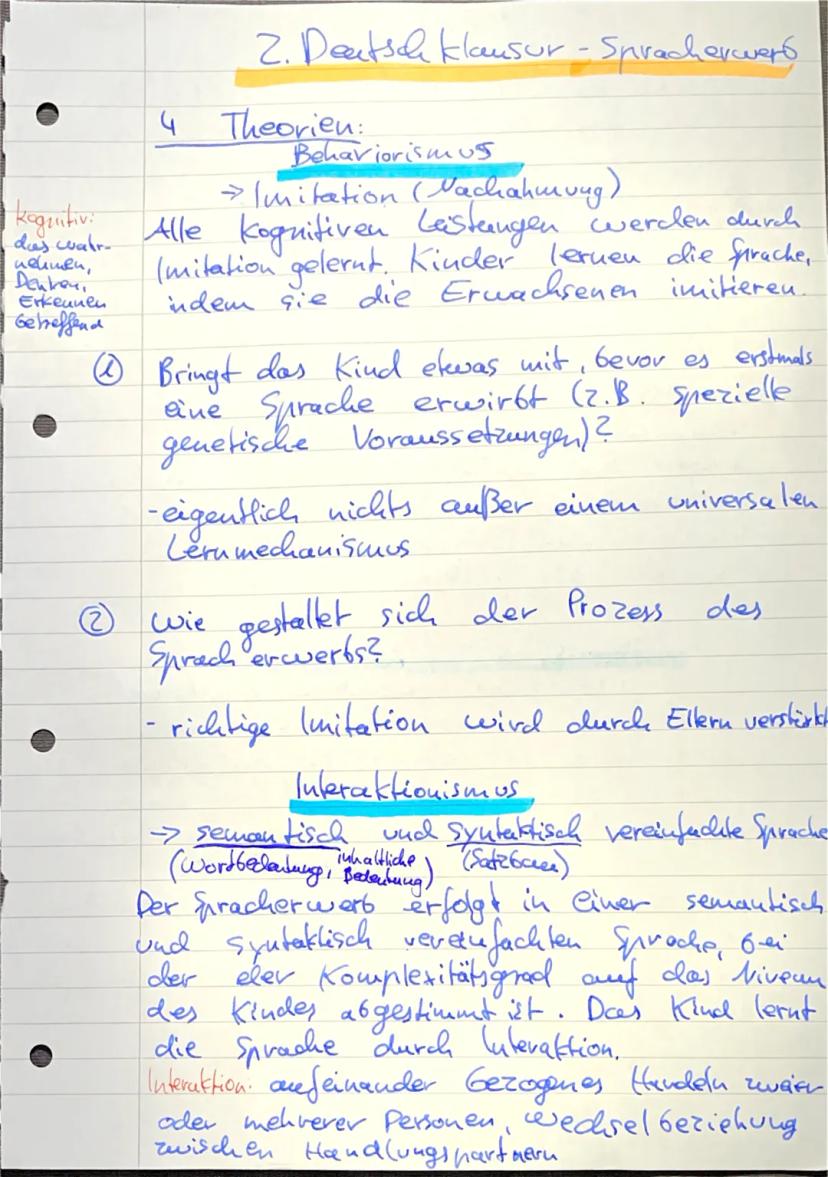 2. Deutschklausur - Spracherwerb
4 Theorien:
Behaviorismus
→ Imitation (Nachahmung)
Kognitiv:
das wahr-
nehmen,
Denken,
Erkennen
betreffend
Alle kognitiven Leistungen werden durch
Imitation gelernt. Kinder lernen die Sprache,
indem sie die Erwachsenen imitieren.
① Bringt das Kind etwas mit, bevor es erstmals
eine Sprache erwirbt (z.B. spezielle
genetische Voraussetzungen)?
- eigentlich nichts außer einem universalen
Lernmechanismus
② Wie gestaltet sich der Prozess des
Spracherwerbs?
- richtige Imitation wird durch Eltern verstärkt
Interaktionismus
→ semantisch und syntaktisch vereinfachte Sprache
(Wortbedeutung, inhaltliche Bedeutung) (Satzbau)
Der Spracherwerb erfolgt in einer semantisch
und syntaktisch vereinfachten Sprache, bei
der der Komplexitätsgrad auf das Niveau
des Kindes abgestimmt ist. Das Kind lernt
die Sprache durch Interaktion.
Interaktion: aufeinander bezogenes Handeln zweier
oder mehrerer Personen, Wechselbeziehung
zwischen Handlungspartnern